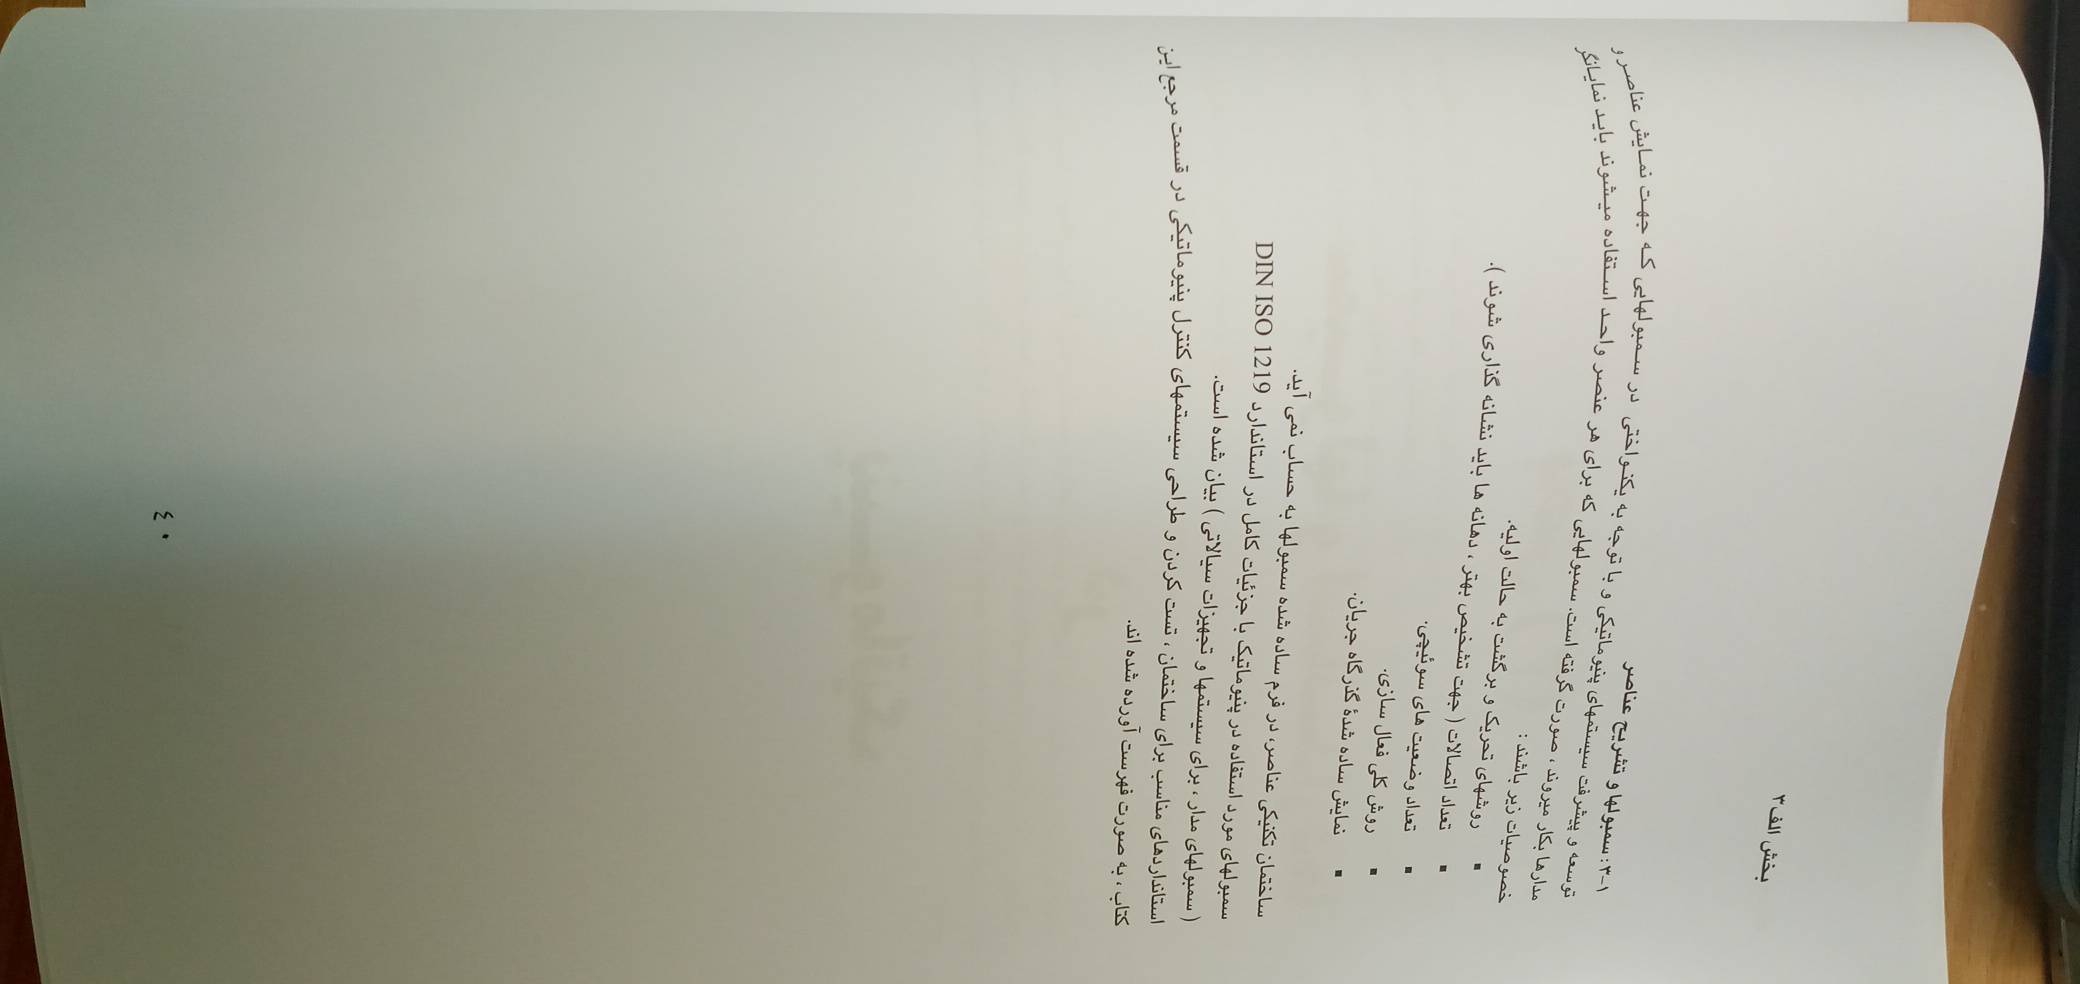 بخش الف ۳
۳-۱: سمبولها و تشریح عناصر
توسعه و پیشرفت سیستمهای پنیوماتیکی و با توجه به یکنواختی در سمبولهایی که جهت نمایش عناصر و
مدارها بکار میروند، صورت گرفته است. سمبولهایی که برای هر عنصر واحد استفاده میشوند باید نمایانگر
خصوصیات زیر باشند :
▪ روشهای تحریک و برگشت به حالت اولیه.
▪ تعداد اتصالات ( جهت تشخیص بهتر ، دهانه ها باید نشانه گذاری شوند ).
▪ تعداد وضعیت های سوئیچی.
▪ روش کلی فعال سازی.
▪ نمایش ساده شدهٔ گذرگاه جریان.
ساختمان تکنیکی عناصر، در فرم ساده شده سمبولها به حساب نمی آید.
سمبولهای مورد استفاده در پنیوماتیک با جزئیات کامل در استاندارد DIN ISO 1219
( سمبولهای مدار ، برای سیستمها و تجهیزات سیالاتی ) بیان شده است.
استانداردهای مناسب برای ساختمان ، تست کردن و طراحی سیستمهای کنترل پنیوماتیکی در قسمت مرجع این
کتاب ، به صورت فهرست آورده شده اند.
٤٠